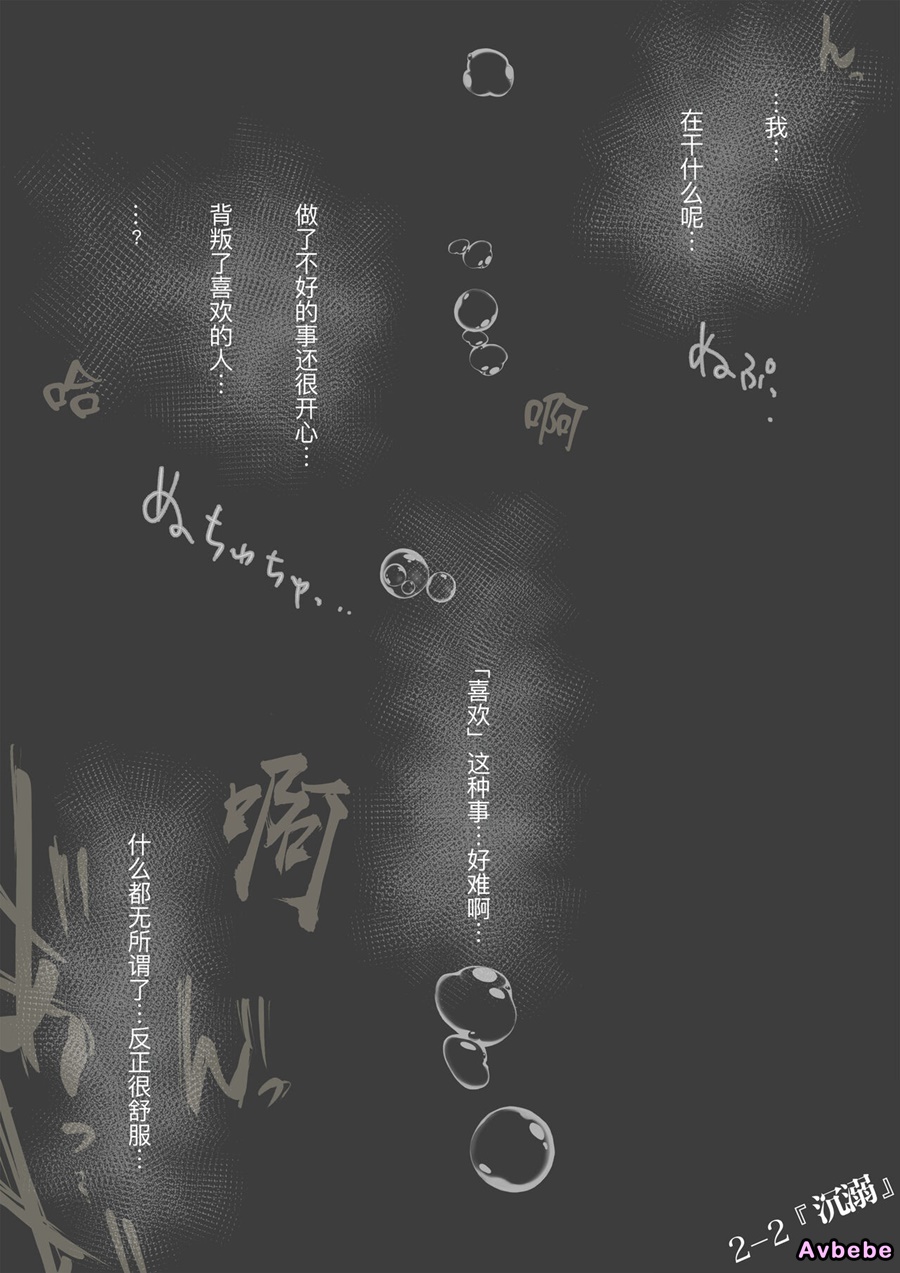 んっ
…我…
在干什么呢…
ぬぷ。。
啊
做了不好的事还很开心…
背叛了喜欢的人…
…？
哈
ぬちゅちゅ、‥
「喜欢」这种事…好难啊…
啊
什么都无所谓了…反正很舒服…
んっ
2-2『沉溺』
Avbebe